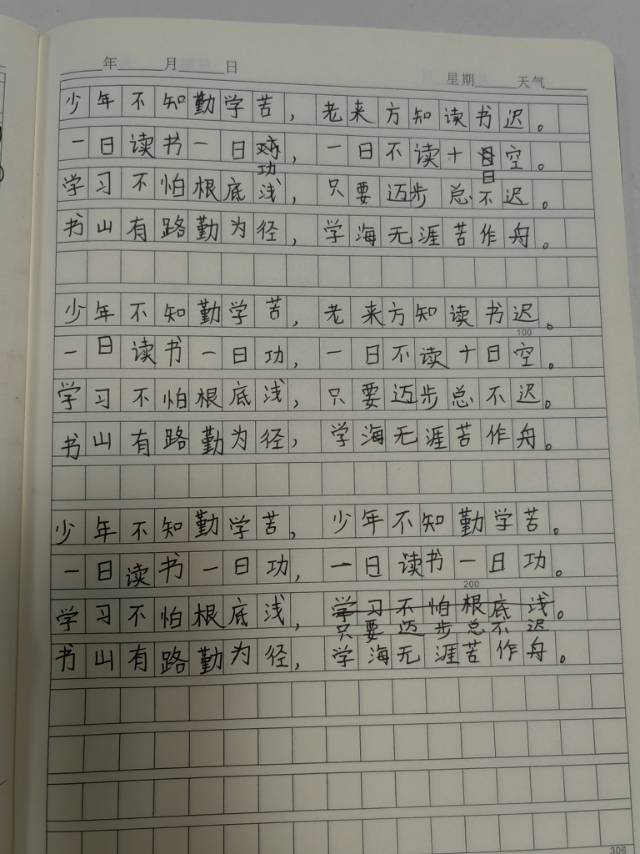 年 月 日 星期 天气
少年不知勤学苦，老来方知读书迟。
一日读书一日功，一日不读十日空。
学习不怕根底浅，只要迈步总不迟。
书山有路勤为径，学海无涯苦作舟。
少年不知勤学苦，老来方知读书迟。
100
一日读书一日功，一日不读十日空。
学习不怕根底浅，只要迈步总不迟。
书山有路勤为径，学海无涯苦作舟。
少年不知勤学苦，少年不知勤学苦。
一日读书一日功，一日读书一日功。
200
学习不怕根底浅，学习不怕根底浅。
只要迈步总不迟
书山有路勤为径，学海无涯苦作舟。
306